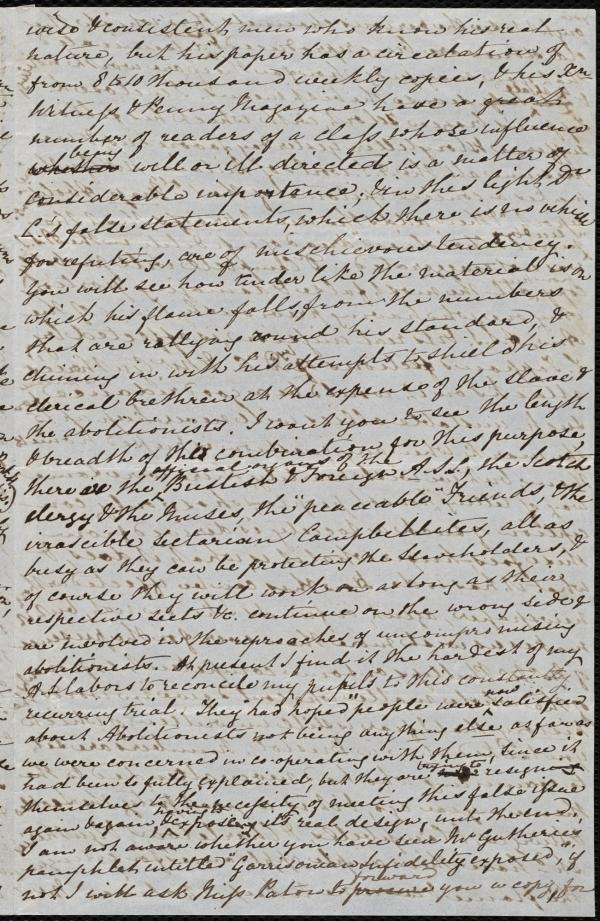 wise & consistent men who know his real
nature, but his paper has a circulation of
from 8 to 10 thousand weekly copies, & his Xn
Witness & Penny Magazine have a great
number of readers of a class whose influence
being
whether will or ill directed is a matter of
considerable importance, & in this light Dr
C.'s false statements, which there is no vehicle
for refuting, are of mischievous tendency.
You will see how tinder like the material is on
which his flame falls, from the numbers
that are rallying round his standard, &
chiming in with his attempts to shield his
clerical brethren at the expense of the slave &
the abolitionists. I want you to see the length
& breadth of the combination for this purpose,
official organs of the
there are the British & Foreign A.S.S., the Scotch
clergy & the Muses, the "peaceable" Friends, & the
irrascible sectarian Campbellites, all as
busy as they can be protecting the slaveholders, &
of course they will work on as long as their
respective sects &c. continue on the wrong side &
are involved in the reproaches of uncompromising
abolitionists. At present I find it the hardest of my
A.S. labors to reconcile my pupils to this constantly
now
recurring trial. They had hoped "people were satisfied
about Abolitionists not being anything else as far as
we were concerned in co-operating with them, since it
had been so fully explained, but they are resigning
themselves to the necessity of meeting this false issue
again & again, & exposing its real design, unto the end.
I am not aware whether you have seen Mr Gutherie's
pamphlet intitled "Garrisonian Infidelity exposed," if
forward
not I will ask Miss Paton to procure you a copy, for